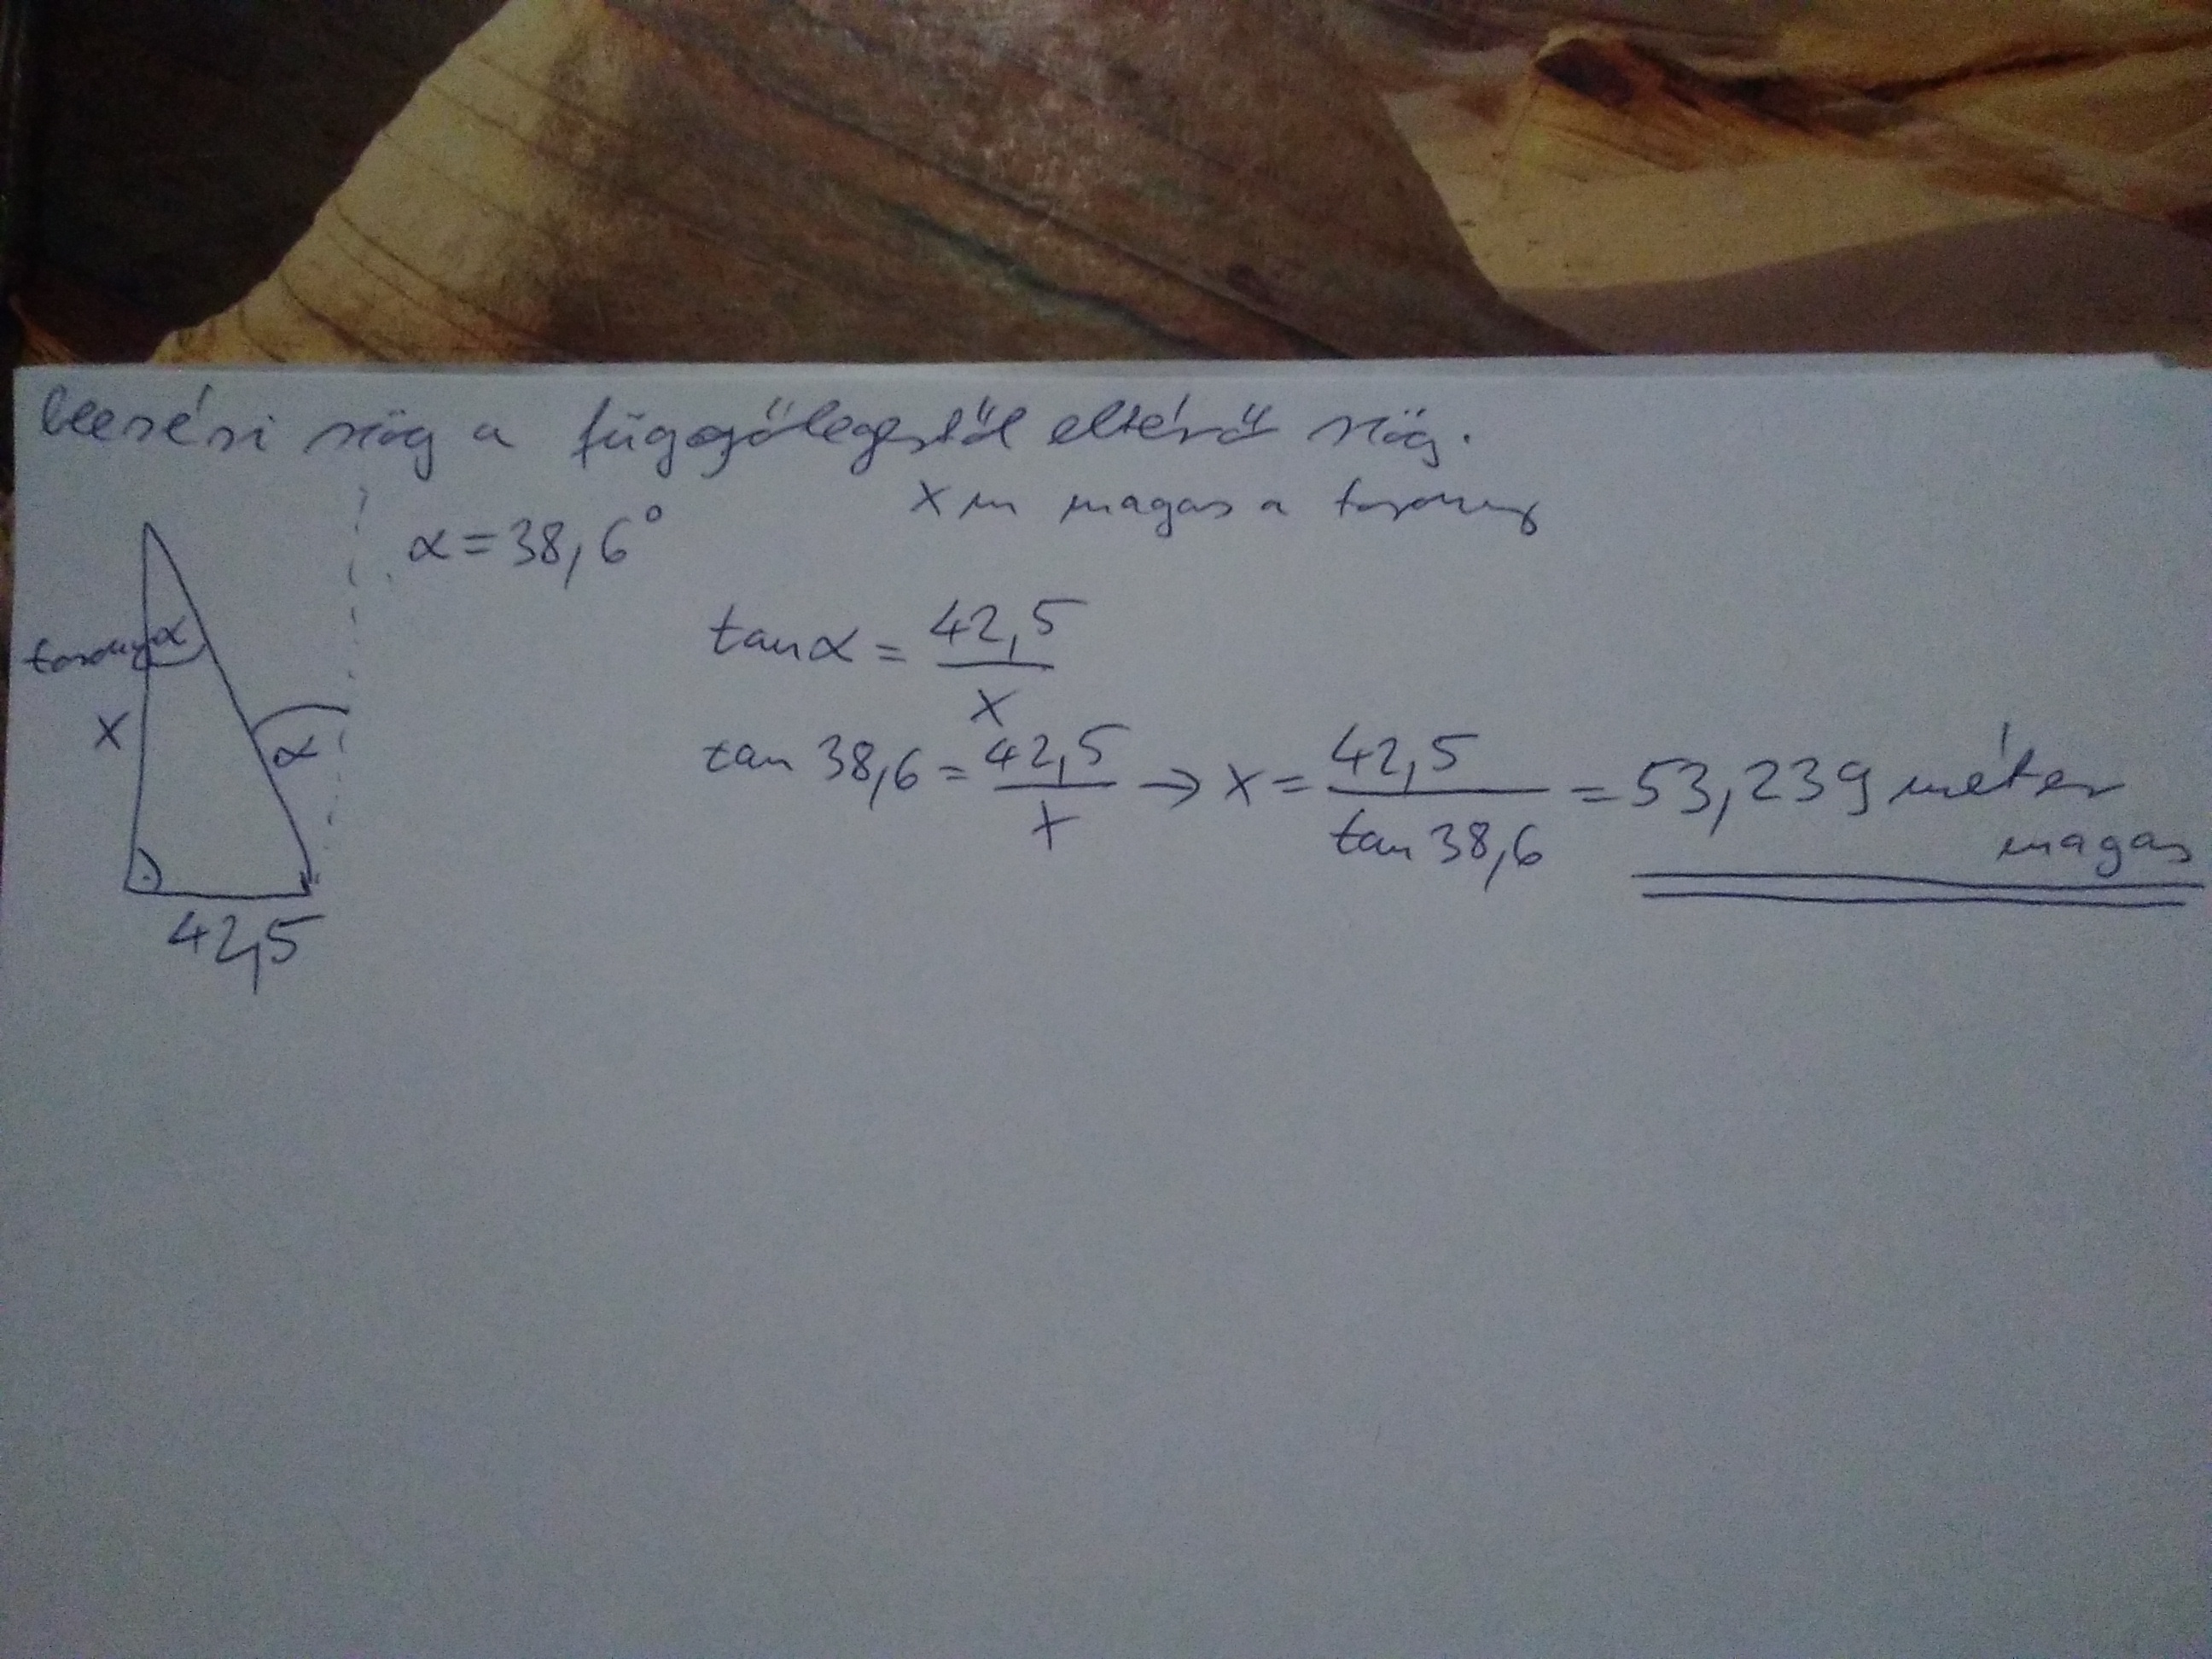 beesési szög a függőlegestől eltérő szög.
x m magas a torony
α=38,6°
torony
α
x
α
42,5
tanα = 42,5/x
tan 38,6 = 42,5/x → x = 42,5/tan 38,6 = 53,239 méter
magas